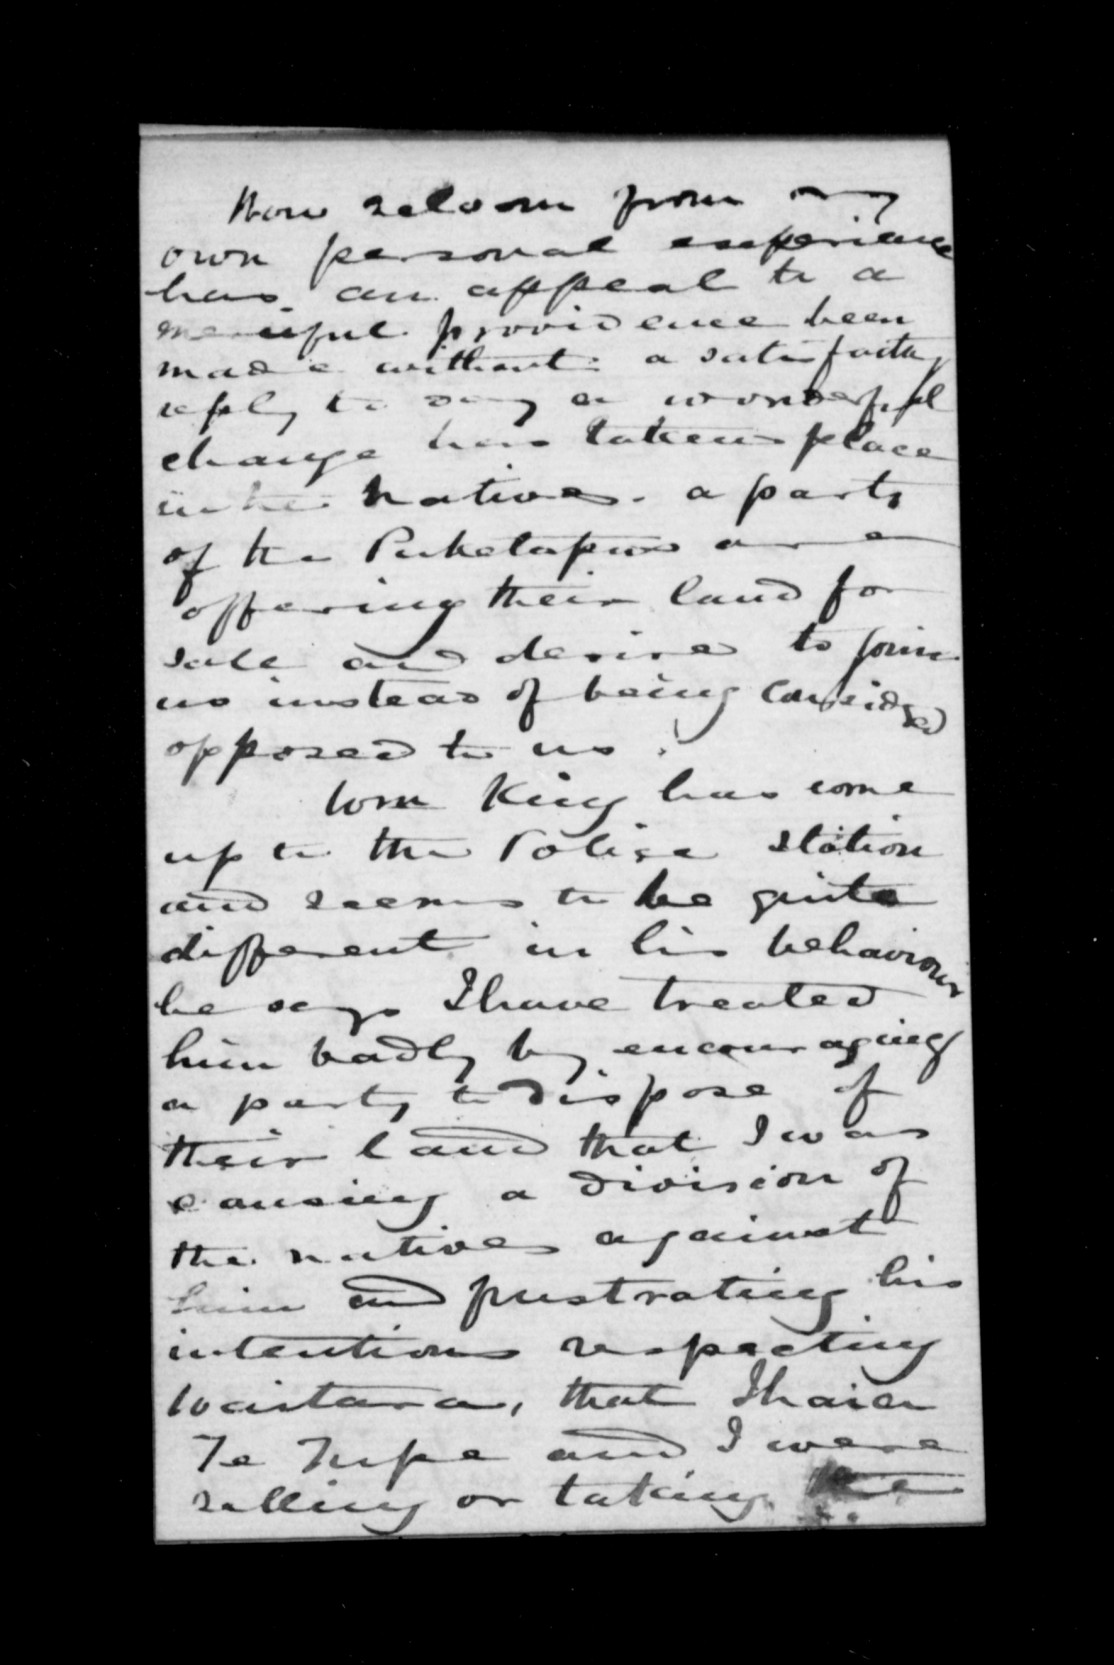 How seldom from my
own personal experience
has an appeal to a
merciful providence been
made without a satisfactory
reply to day a wonderful
change has taken place
in the Natives. a party
of the Puketapus are
offering their land for
sale and desire to join
us instead of being considered
opposed to us.
Wm King has come
up to the Police station
and seems to be quite
different in his behaviour
he says I have treated
him badly by encouraging
a party to dispose of
their land that I was
causing a division of
the natives against
him and frustrating his
intentions respecting
Waitara, that Ihaia
Te Tupe and I were
selling or taking the